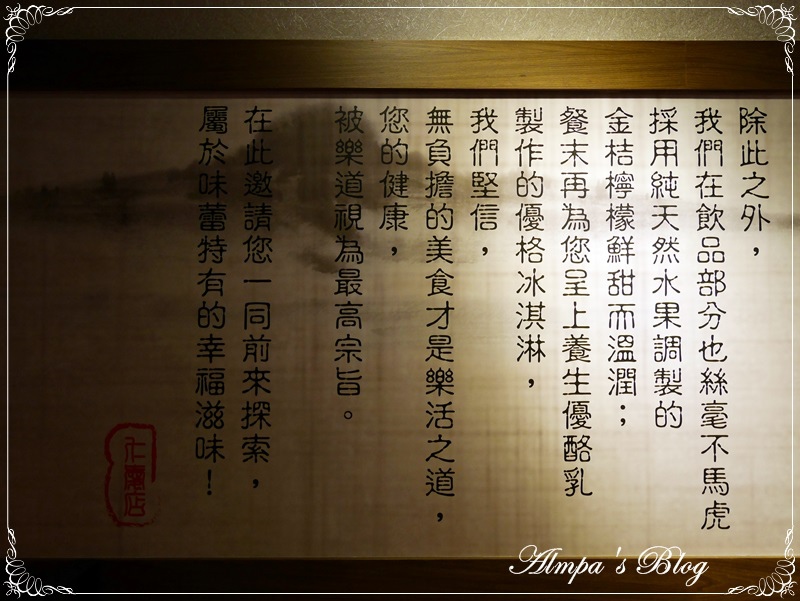 除此之外，
我們在飲品部分也絲毫不馬虎
採用純天然水果調製的
金桔檸檬鮮甜而溫潤；
餐末再為您呈上養生優酪乳
製作的優格冰淇淋，
我們堅信，
無負擔的美食才是樂活之道，
您的健康，
被樂道視為最高宗旨。
在此邀請您一同前來探索，
屬於味蕾特有的幸福滋味！
Almpa's Blog